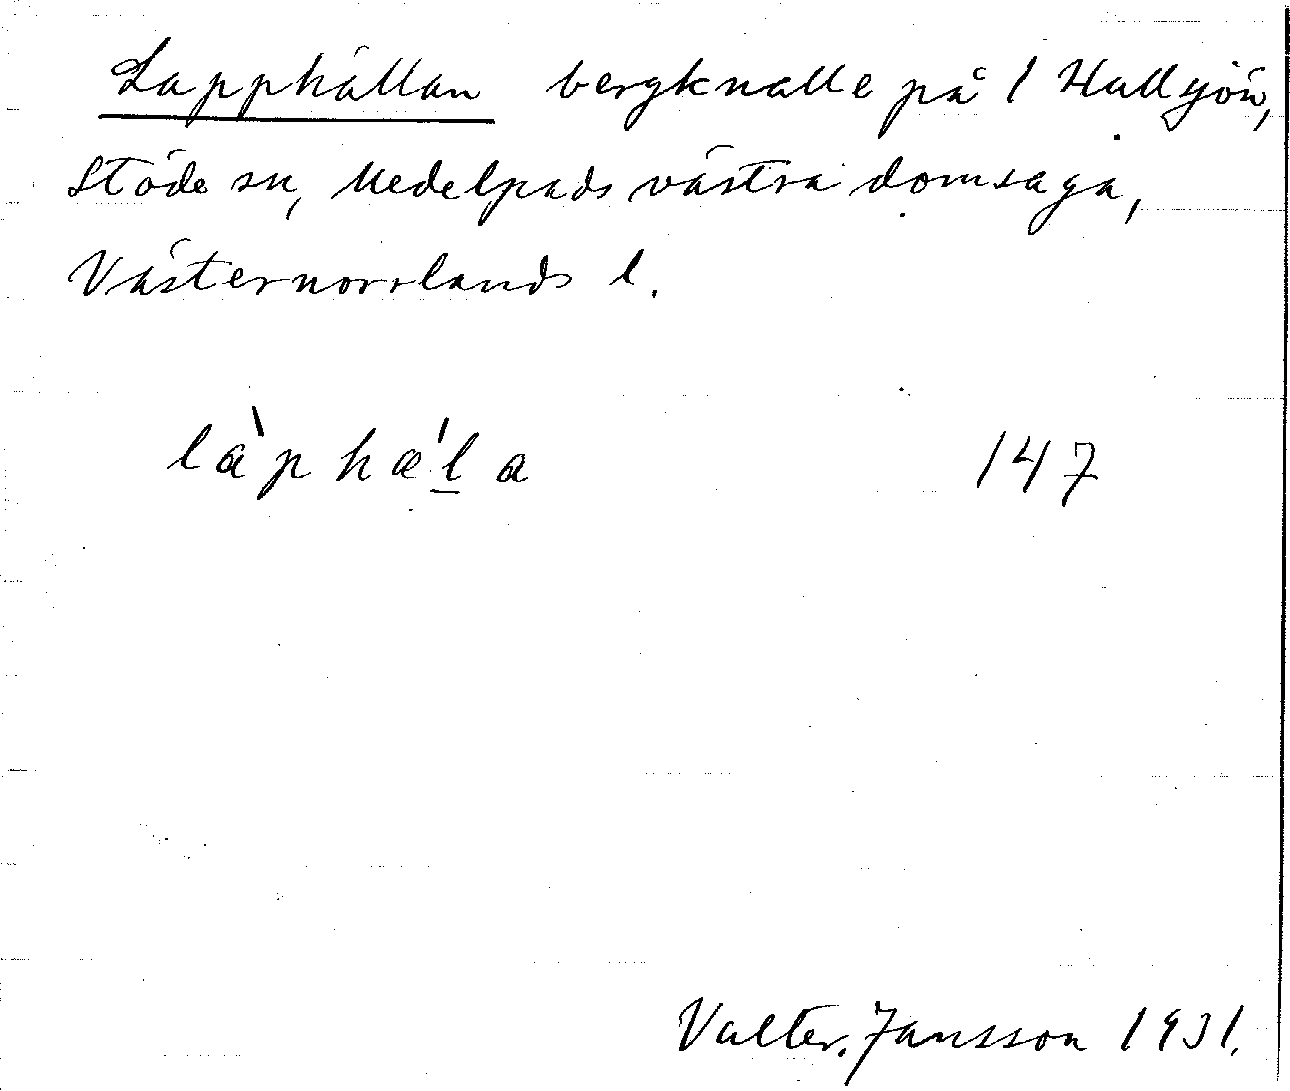 Lapphällan bergknalle på 1 Hallsjön,
Stöde sn, Medelpads västra domsaga,
Västernorrlands l.
la`phæ'l̲a 147
Valter Jansson 1931.